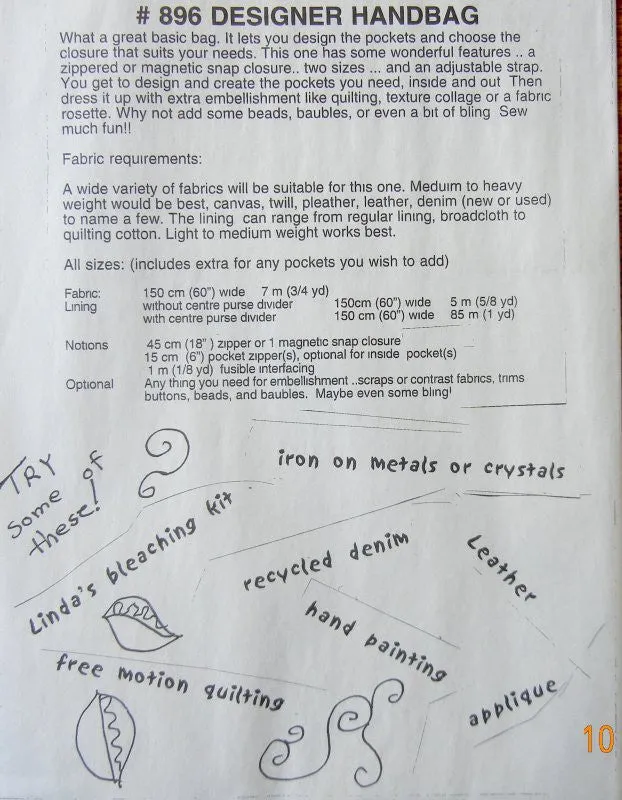 # 896 DESIGNER HANDBAG
What a great basic bag. It lets you design the pockets and choose the
closure that suits your needs. This one has some wonderful features .. a
zippered or magnetic snap closure.. two sizes ... and an adjustable strap.
You get to design and create the pockets you need, inside and out Then
dress it up with extra embellishment like quilting, texture collage or a fabric
rosette. Why not add some beads, baubles, or even a bit of bling Sew
much fun!!
Fabric requirements:
A wide variety of fabrics will be suitable for this one. Meduim to heavy
weight would be best, canvas, twill, pleather, leather, denim (new or used)
to name a few. The lining can range from regular lining, broadcloth to
quilting cotton. Light to medium weight works best.
All sizes: (includes extra for any pockets you wish to add)
Fabric: 150 cm (60") wide 7 m (3/4 yd)
Lining without centre purse divider 150cm (60") wide 5 m (5/8 yd)
with centre purse divider 150 cm (60") wide 85 m (1 yd)
Notions 45 cm (18" ) zipper or 1 magnetic snap closure
15 cm (6") pocket zipper(s), optional for inside pocket(s)
1 m (1/8 yd) fusible interfacing
Optional Any thing you need for embellishment ..scraps or contrast fabrics, trims
buttons, beads, and baubles. Maybe even some bling!
TRY
some of
these!
iron on metals or crystals
Linda's bleaching kit
recycled denim
Leather
hand painting
free motion quilting
applique
10